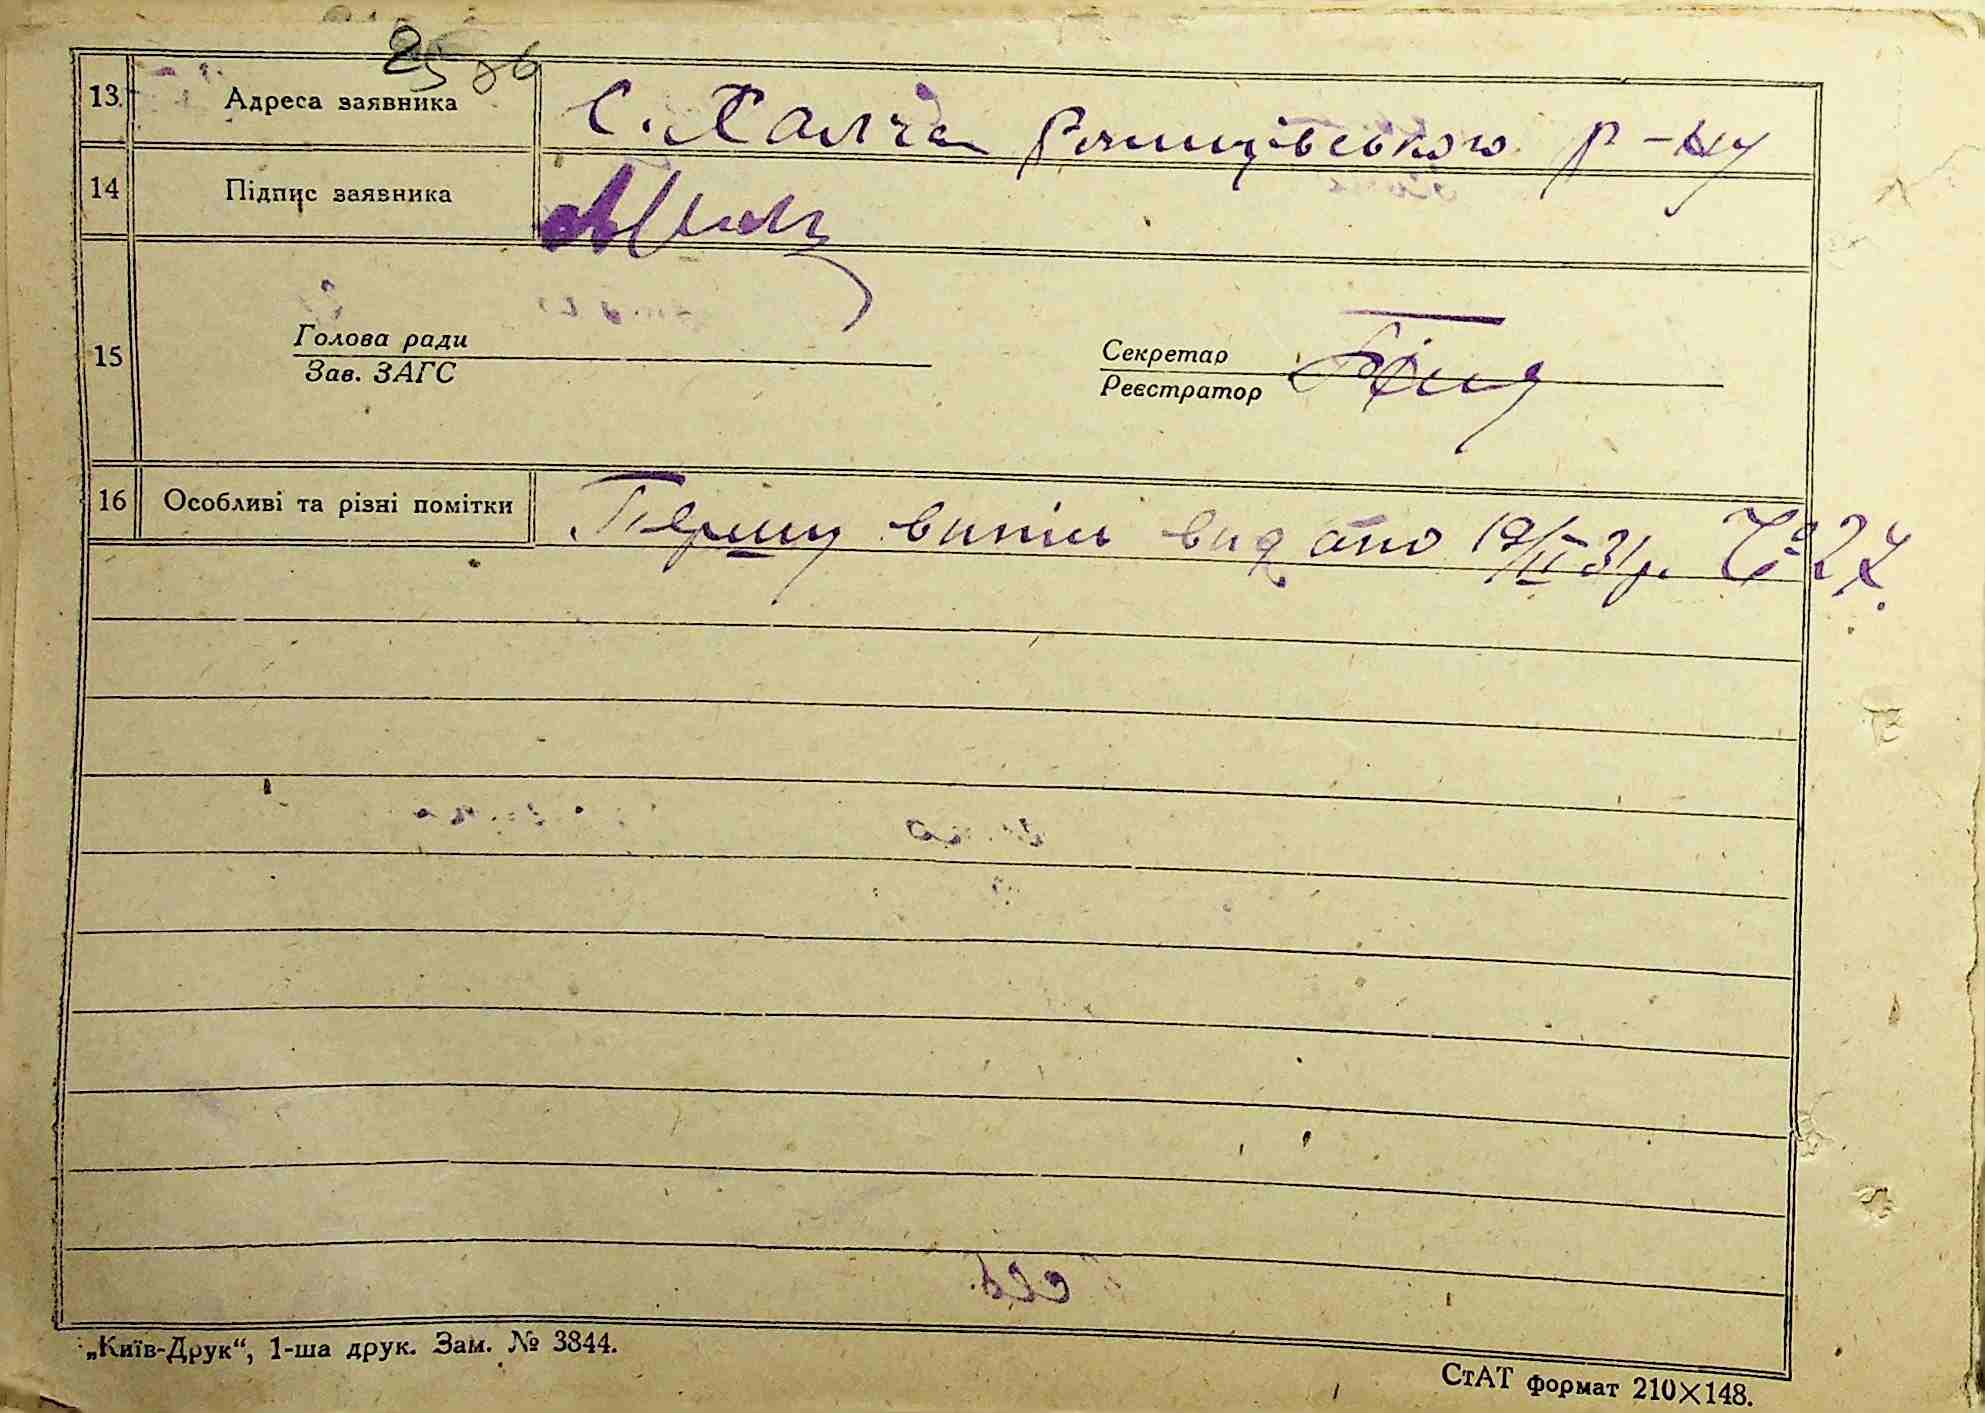 25 зв
13. Адреса заявника С. Халча Ржищівського р-ну
14 Підпис заявника
15 Голова ради
Зав. ЗАГС
Секретар
Реєстратор
16 Особливі та різні помітки Першу випис видано 19/II 31р. Ч° 27.
„Київ-Друк“, 1-ша друк. Зам. № 3844.
СтАТ формат 210×148.